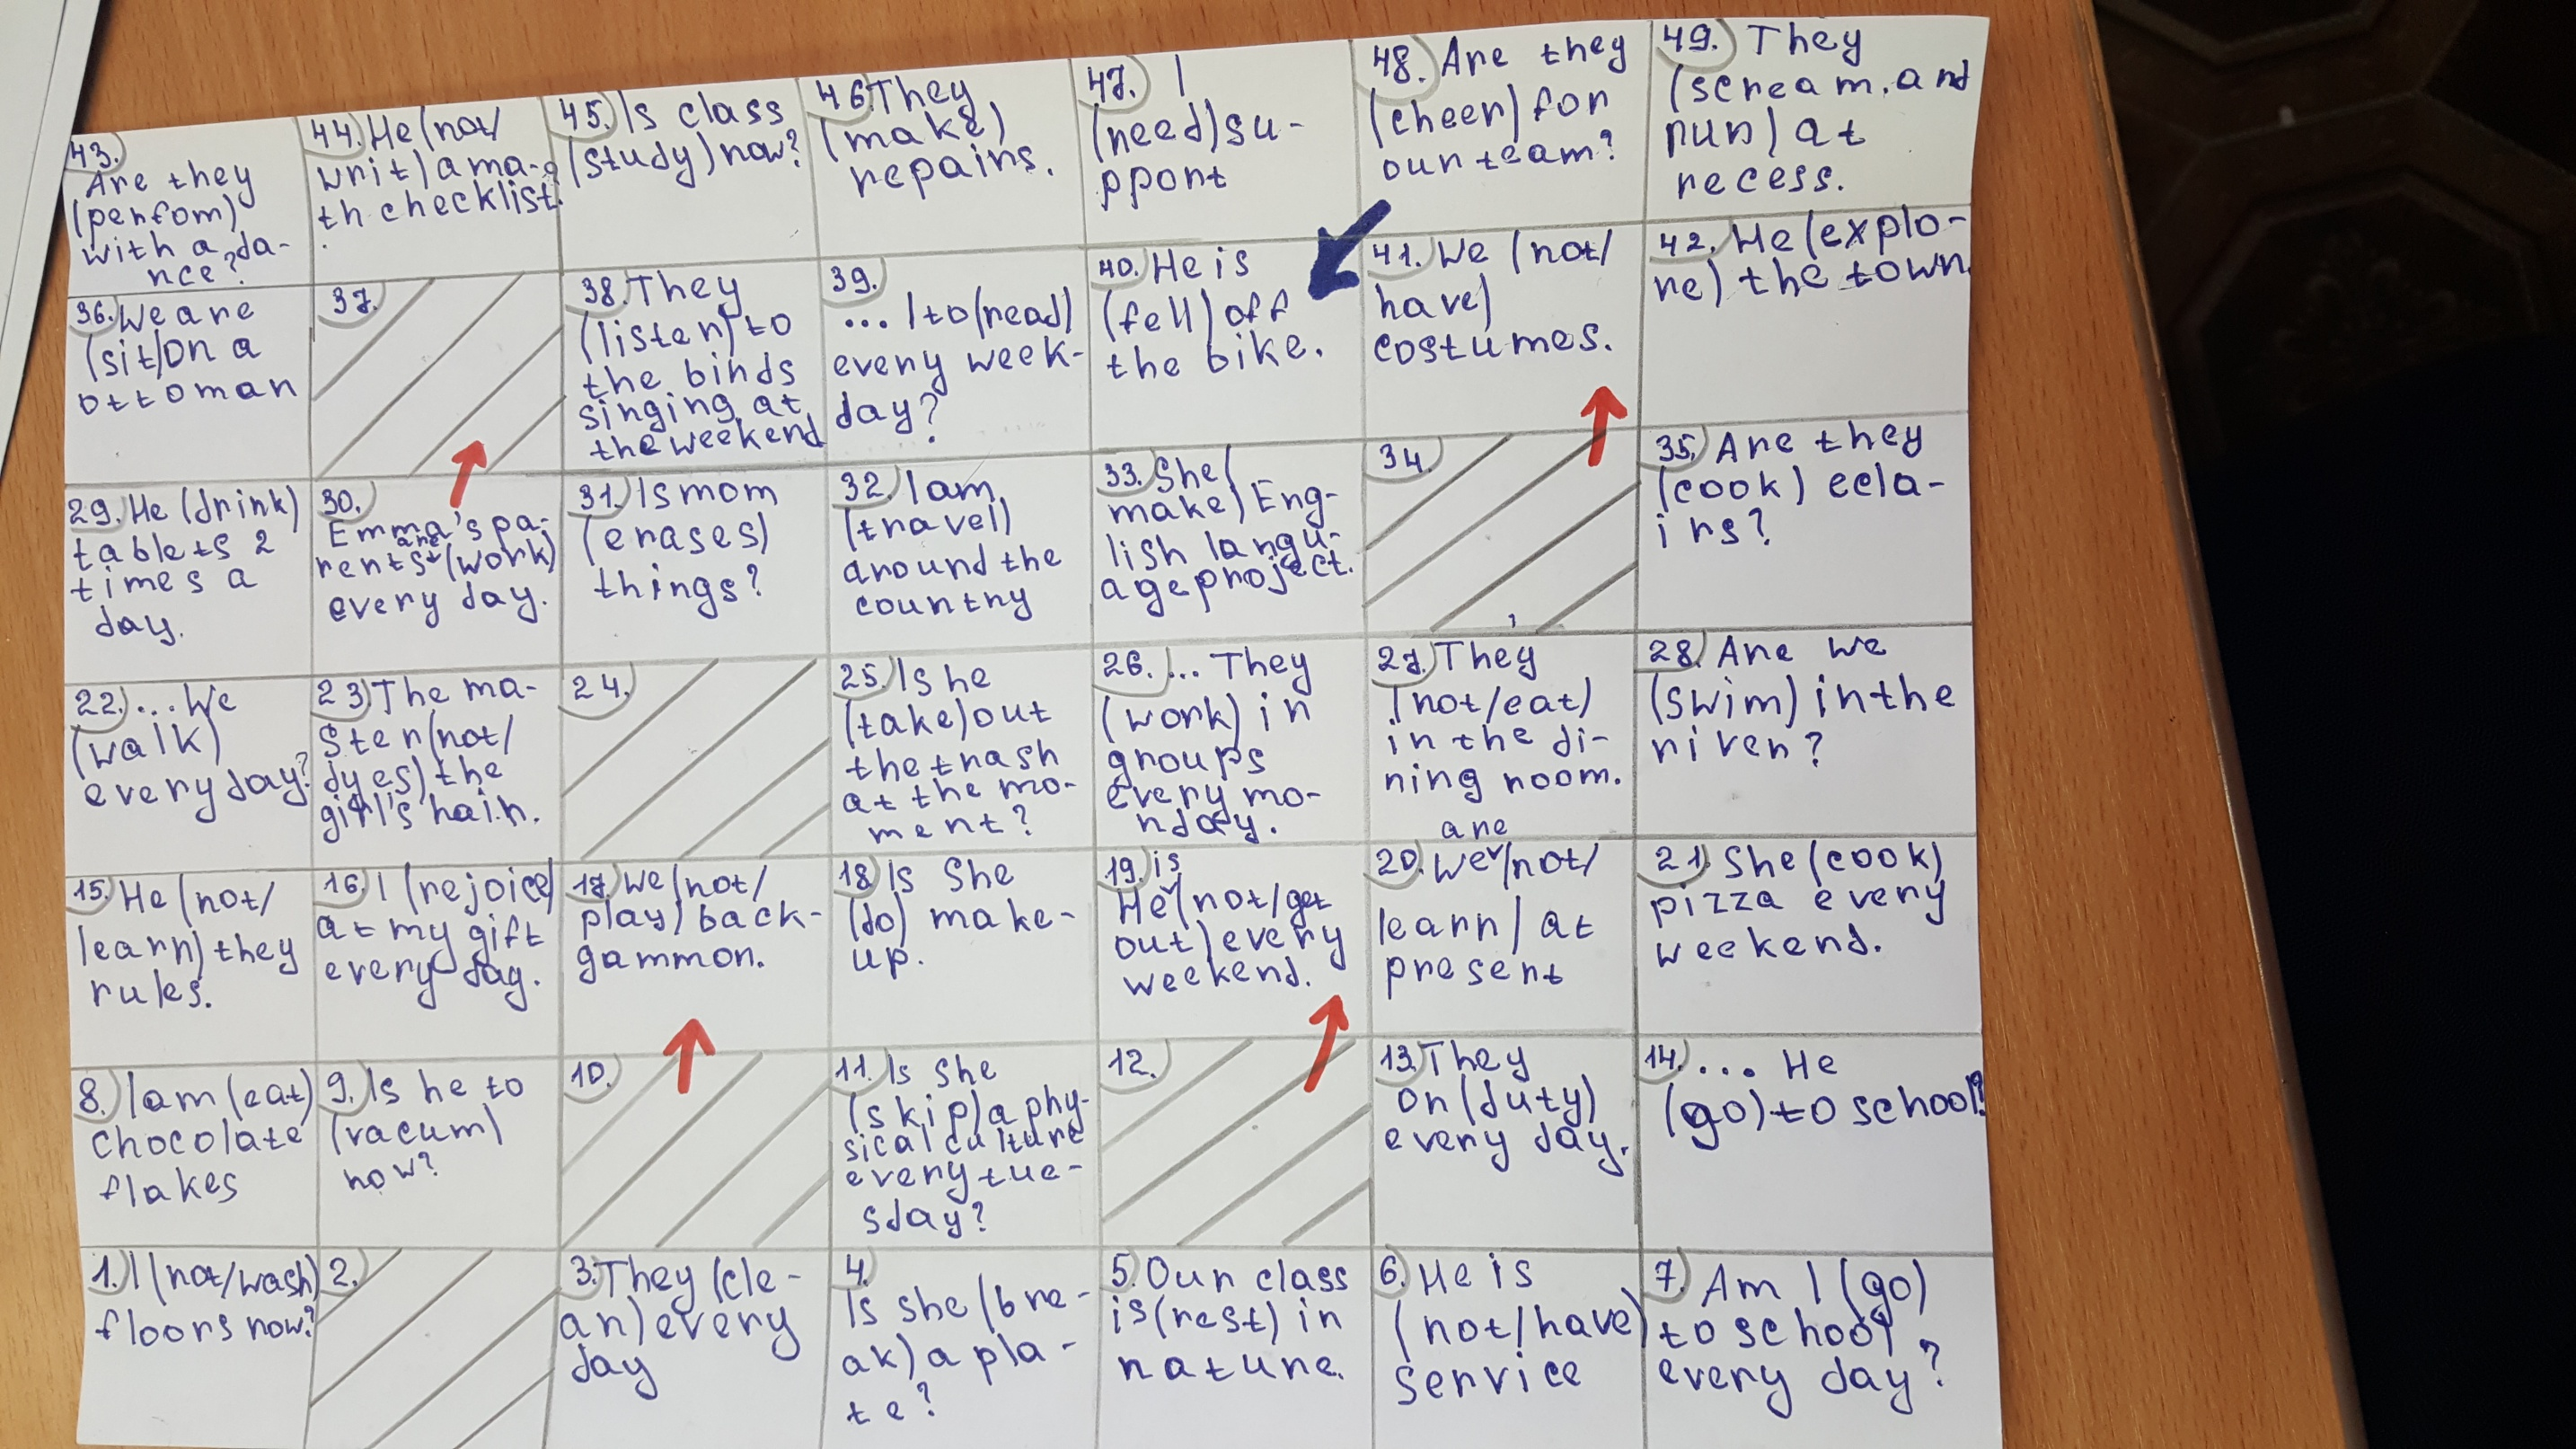 43.
Are they
(perfom)
with a da-
nce?
44. He (not/
writ) a ma-
th checklist.
45. Is class
(study) now?
46 They
(make)
repairs.
47. I
(need) su-
pport
48. Are they
(cheer) for
our team?
49. They
(scream, and
run) at
recess.
36. We are
(sit) on a
ottoman
37.
38. They
(listen) to
the birds
singing at
the weekend
39.
... I to (read)
every week-
day?
40. He is
(fell) off
the bike.
41. We (not/
have)
costumes.
42. He (explo-
re) the town.
29. He (drink)
tablets 2
times a
day.
30.
Emma's pa-
are
rents (work)
every day.
31. Is mom
(erases)
things?
32. I am
(travel)
around the
country
33. She (
make) Eng-
lish langu-
age project.
34.
35. Are they
(cook) ecla-
irs?
22. ... We
(walk)
every day?
23. The ma-
ster (not/
dyes) the
girl's hair.
24.
25. Is he
(take) out
the trash
at the mo-
ment?
26. ... They
(work) in
groups
every mo-
nday.
27. They
(not/eat)
in the di-
ning room.
28. Are we
(swim) in the
river?
15. He (not/
learn) they
rules.
16. I (rejoice)
at my gift
every day.
17. We (not/
play) back-
gammon.
18. Is She
(do) make-
up.
19. is
He (not/get
out) every
weekend.
are
20. We (not/
learn) at
present
21. She (cook)
pizza every
weekend.
8. I am (eat)
chocolate
flakes
9. Is he to
(vacum)
now?
10.
11. Is She
(skip) a phy-
sical culture
every tue-
sday?
12.
13. They
on (duty)
every day.
14. ... He
(go) to school?
1. I (not/wash)
floors now?
2.
3. They (cle-
an) every
day
4.
Is she (bre-
ak) a pla-
te?
5. Our class
is (rest) in
nature.
6. He is
(not/have)
service
7. Am I (go)
to school
every day?